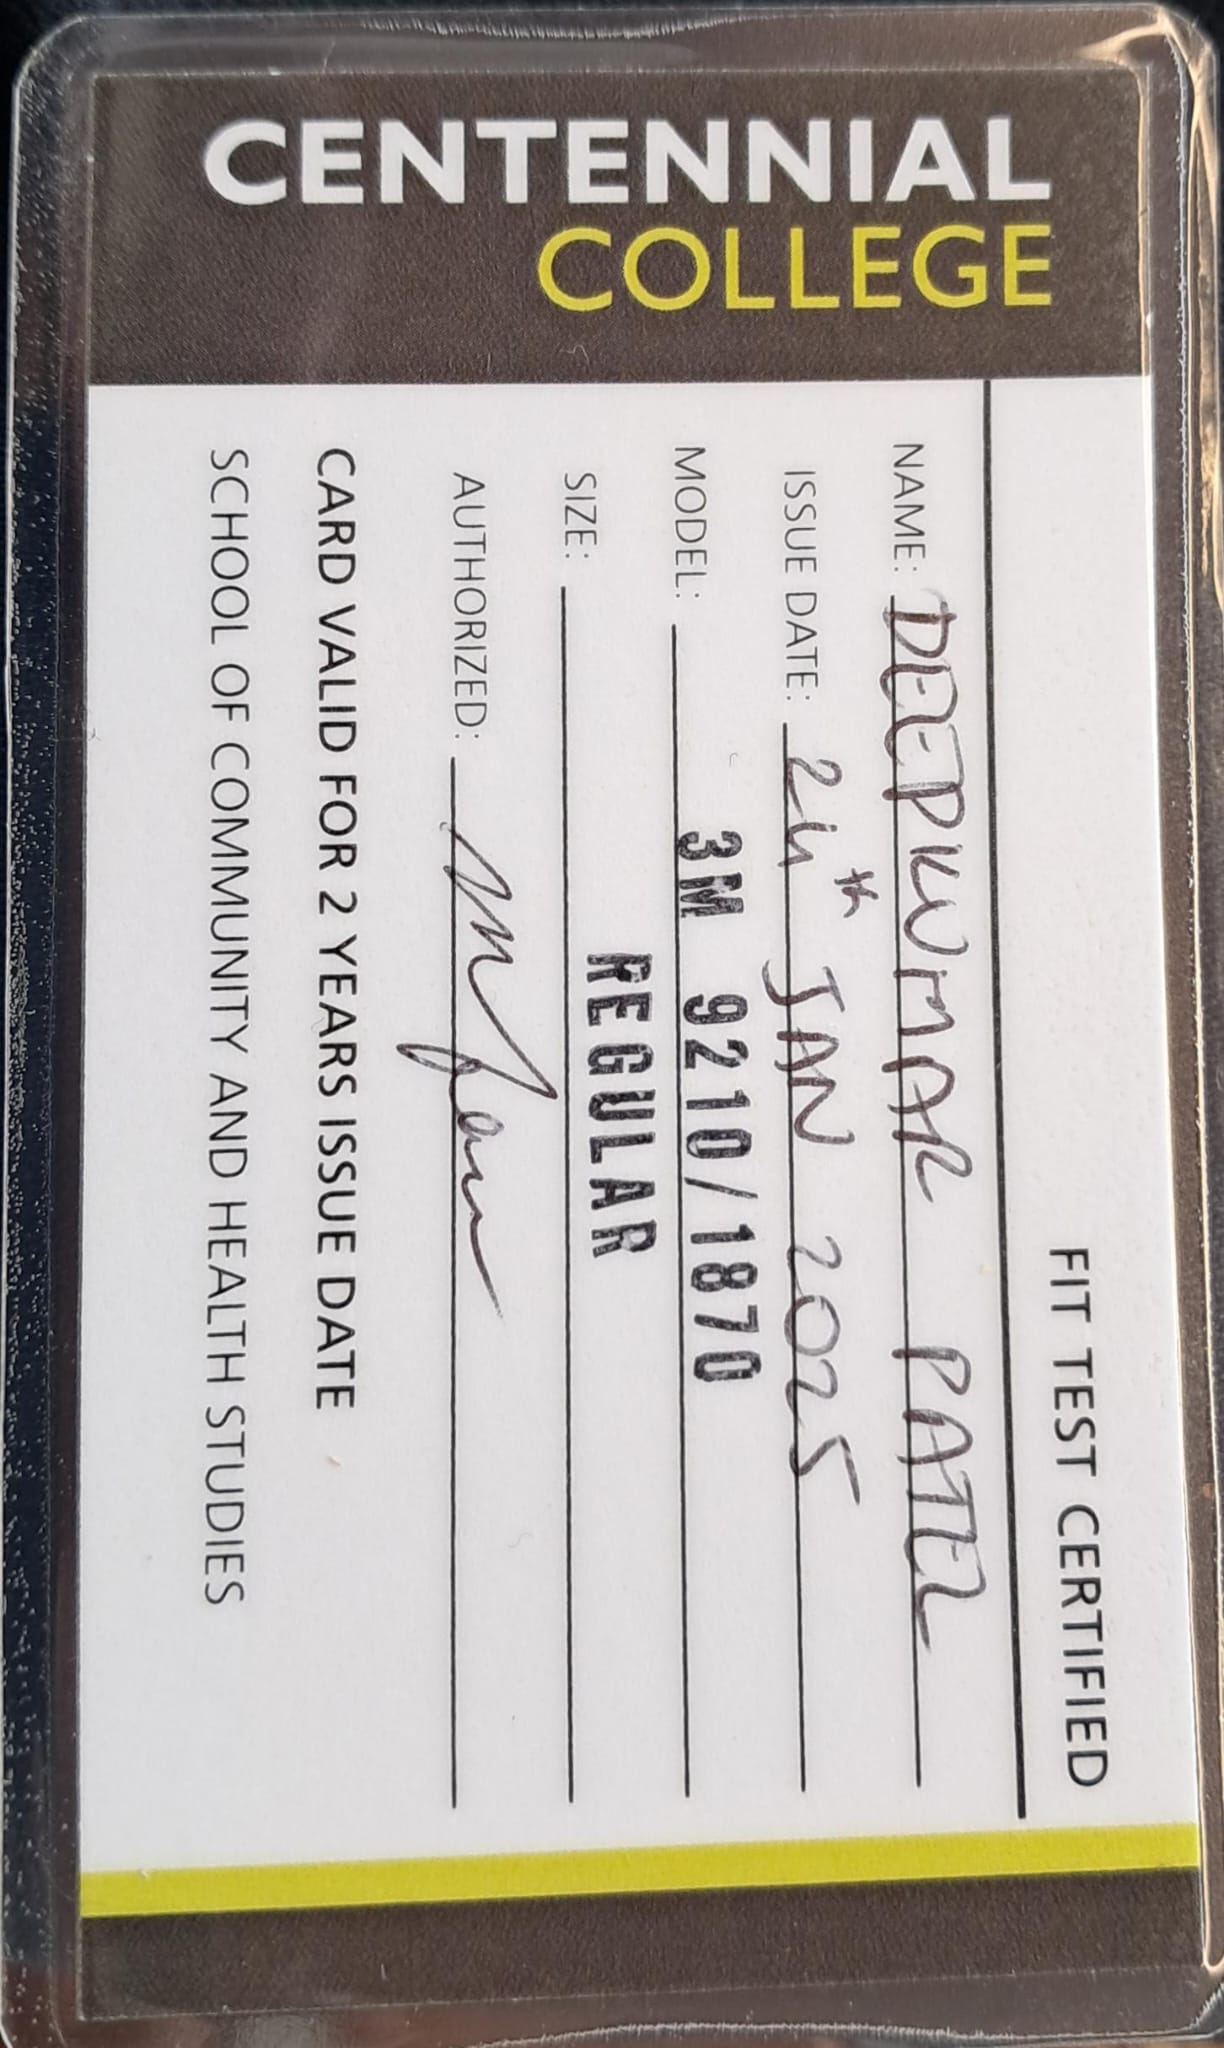 CENTENNIAL
COLLEGE
FIT TEST CERTIFIED
NAME: DEEPKUMAR PATEL
ISSUE DATE: 24th JAN 2025
MODEL: 3M 9210/1870
SIZE: REGULAR
AUTHORIZED:
CARD VALID FOR 2 YEARS ISSUE DATE
SCHOOL OF COMMUNITY AND HEALTH STUDIES